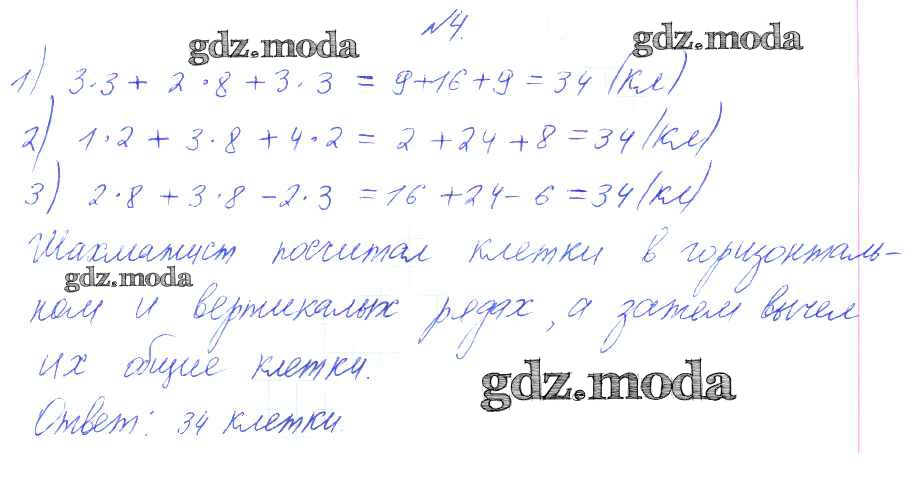 №4.
gdz.moda gdz.moda
1) 3·3 + 2·8 + 3·3 = 9+16+9 = 34 (кл)
2) 1·2 + 3·8 + 4·2 = 2 + 24 + 8 = 34 (кл)
3) 2·8 + 3·8 - 2·3 = 16 + 24 - 6 = 34 (кл)
Шахматист посчитал клетки в горизонталь-
gdz.moda
ном и вертикалых рядах, а затем вычел
их общие клетки.
gdz.moda
Ответ: 34 клетки.